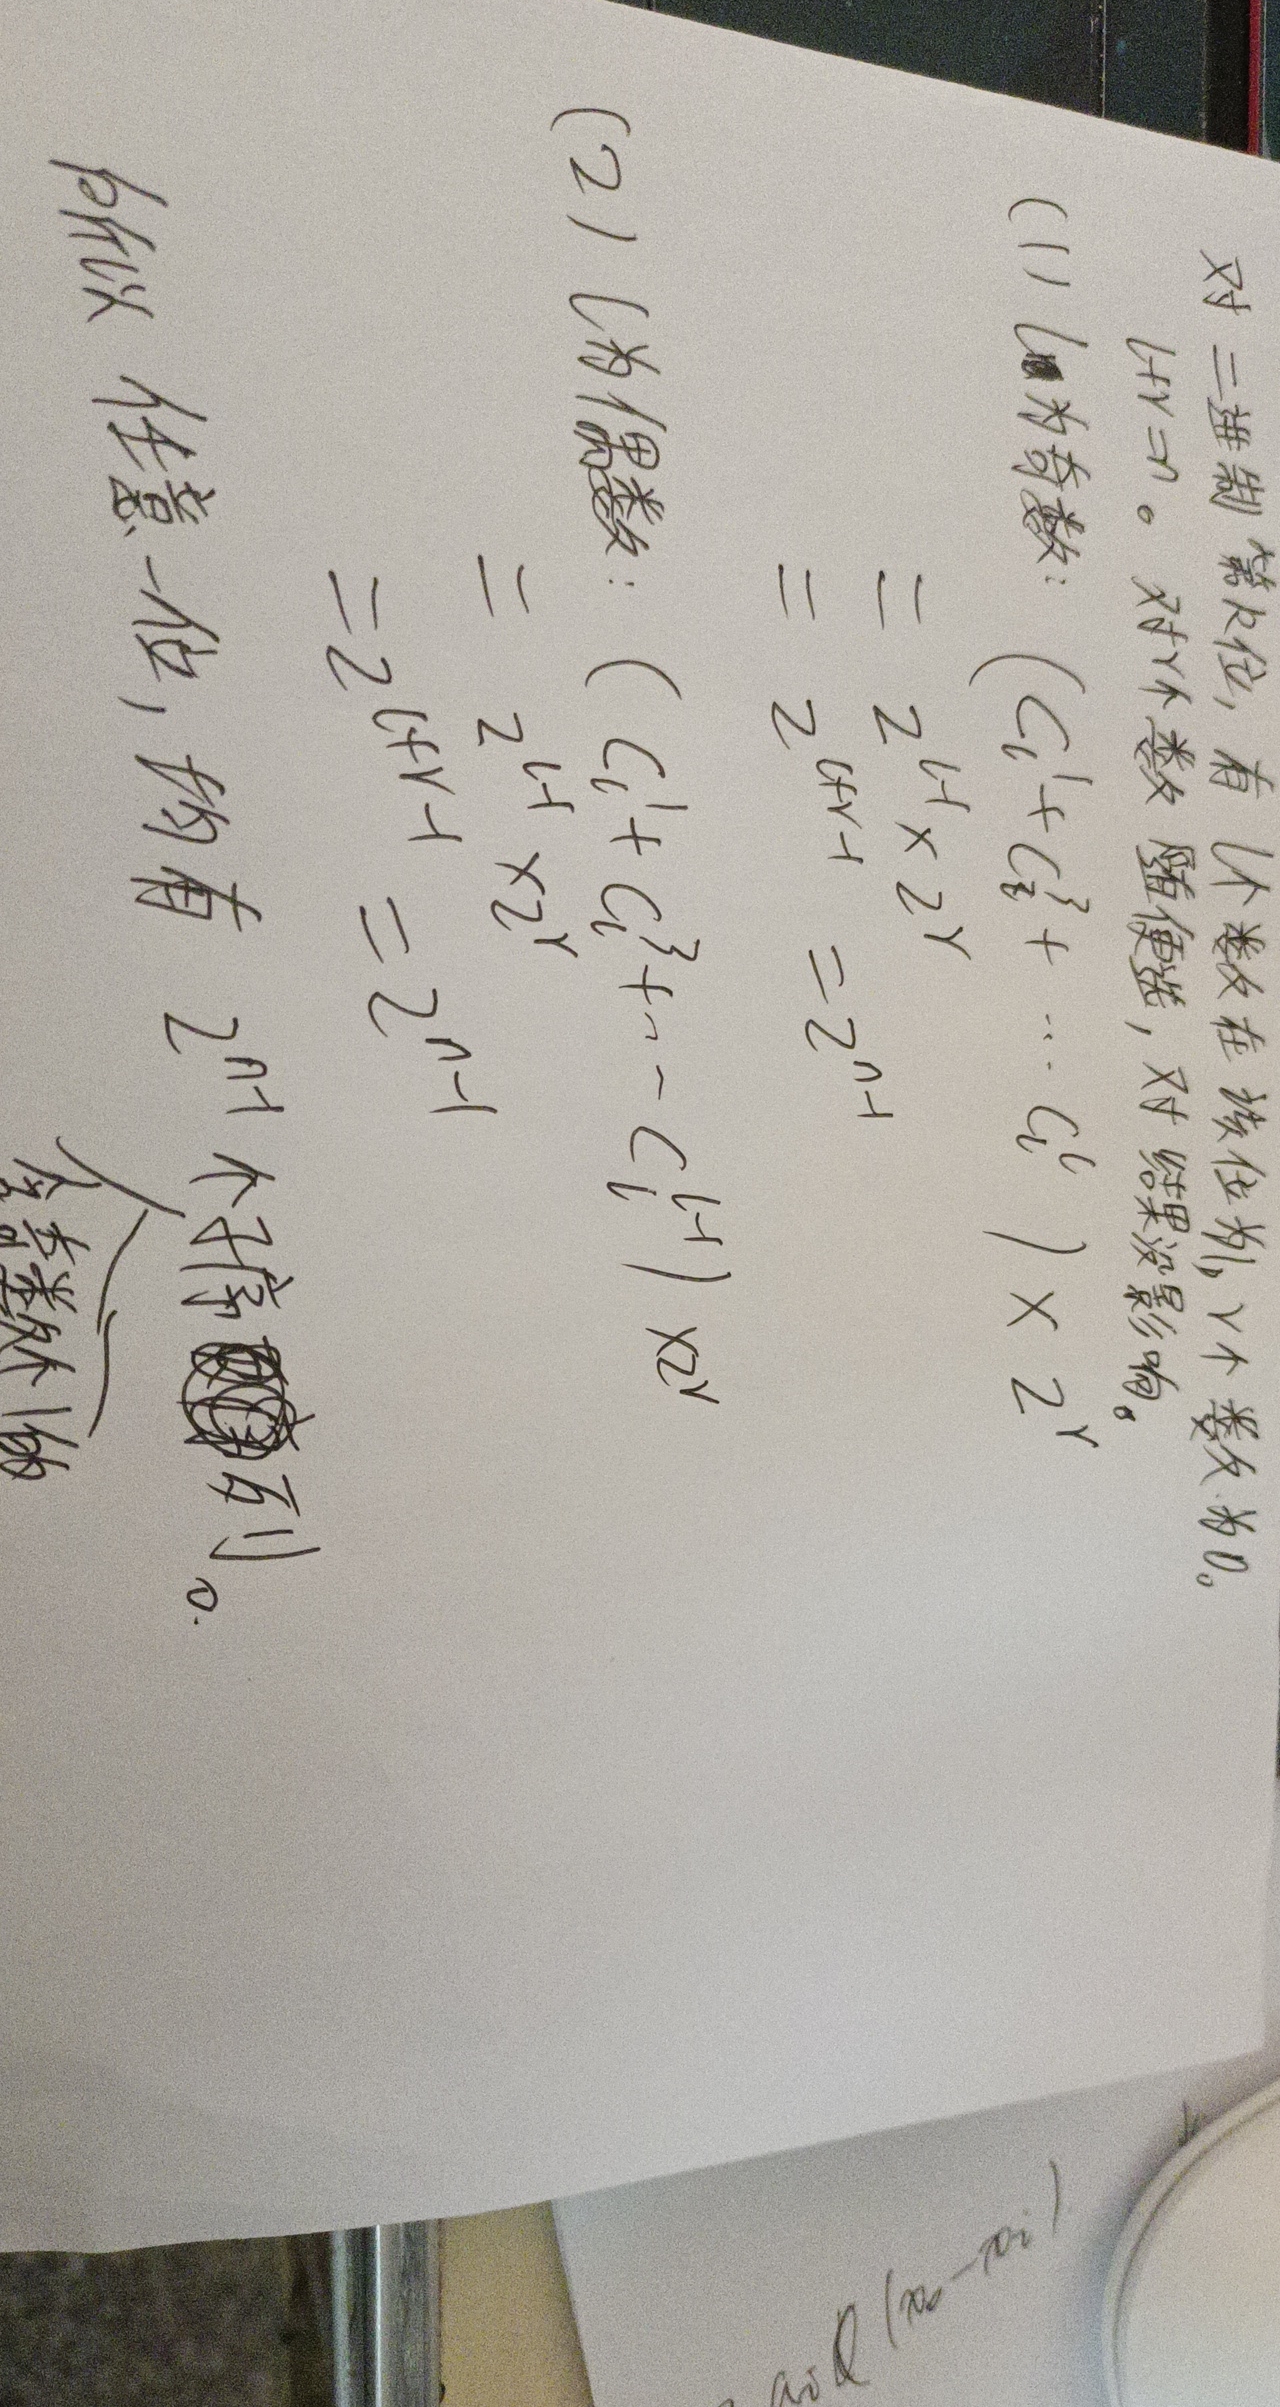 对二进制第k位，有l个数在该位为1，r个数为0。
l+r=n。对r个数随便选，对结果没影响。
(1) l为奇数： (C_l^1+C_l^3+…C_l^l)×2^r
=2^{l-1}×2^r
=2^{l+r-1}=2^{n-1}
(2) l为偶数： (C_l^1+C_l^3+…C_l^{l-1})×2^r
=2^{l-1}×2^r
=2^{l+r-1}=2^{n-1}
所以任意一位，均有2^{n-1}个子序列。
含奇数个1的